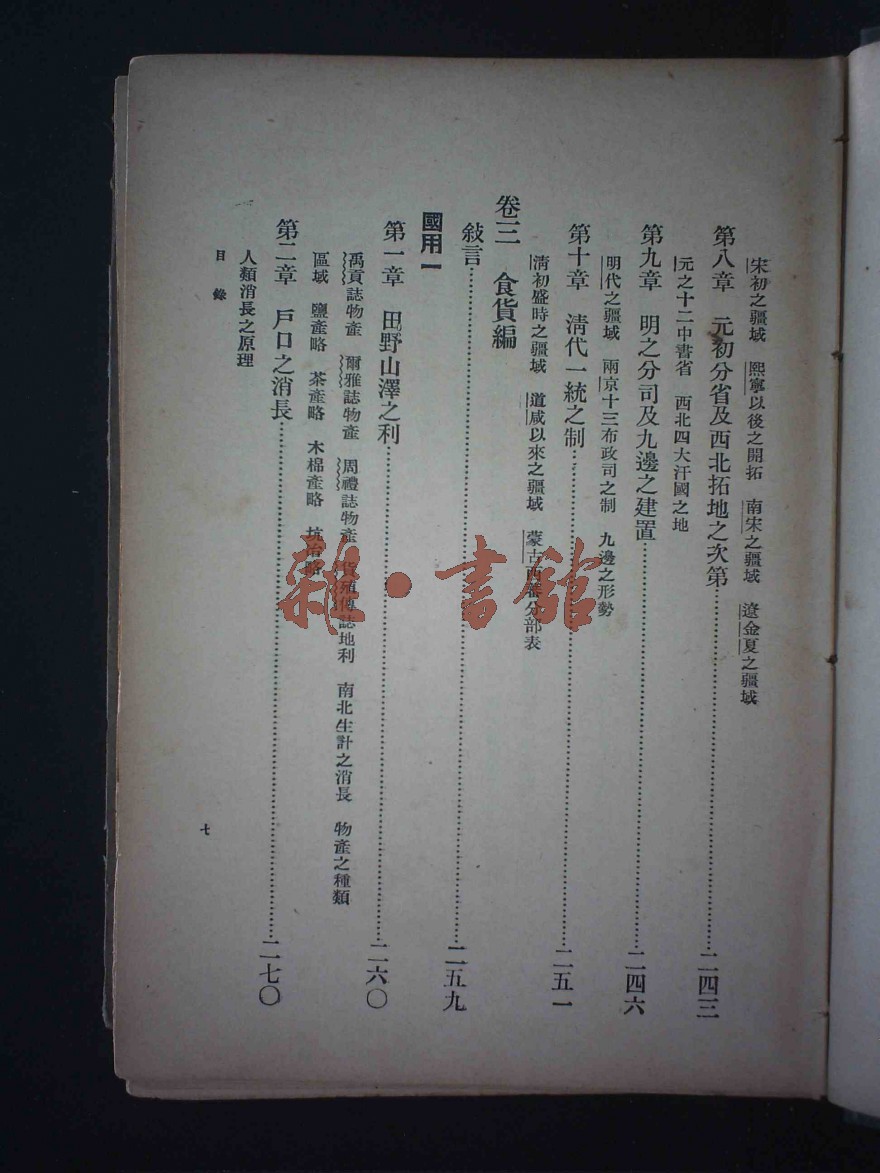 宋初之疆域　熙寧以後之開拓　南宋之疆域　遼金夏之疆域
第八章　元初分省及西北拓地之次第……二四三
元之十二中書省　西北四大汗國之地
第九章　明之分司及九邊之建置……二四六
明代之疆域　兩京十三布政司之制　九邊之形勢
第十章　清代一統之制……二五一
清初盛時之疆域　道咸以來之疆域　蒙古西藩分部表
卷三　食貨編
敍言……二五九
國用一
第一章　田野山澤之利……二六〇
禹貢誌物產　爾雅誌物產　周禮誌物產　貨殖傳誌地利　南北生計之消長　物產之種類
區域　鹽產略　茶產略　木棉產略　坑冶略
第二章　戶口之消長……二七〇
人類消長之原理
目錄
七
雜·書館